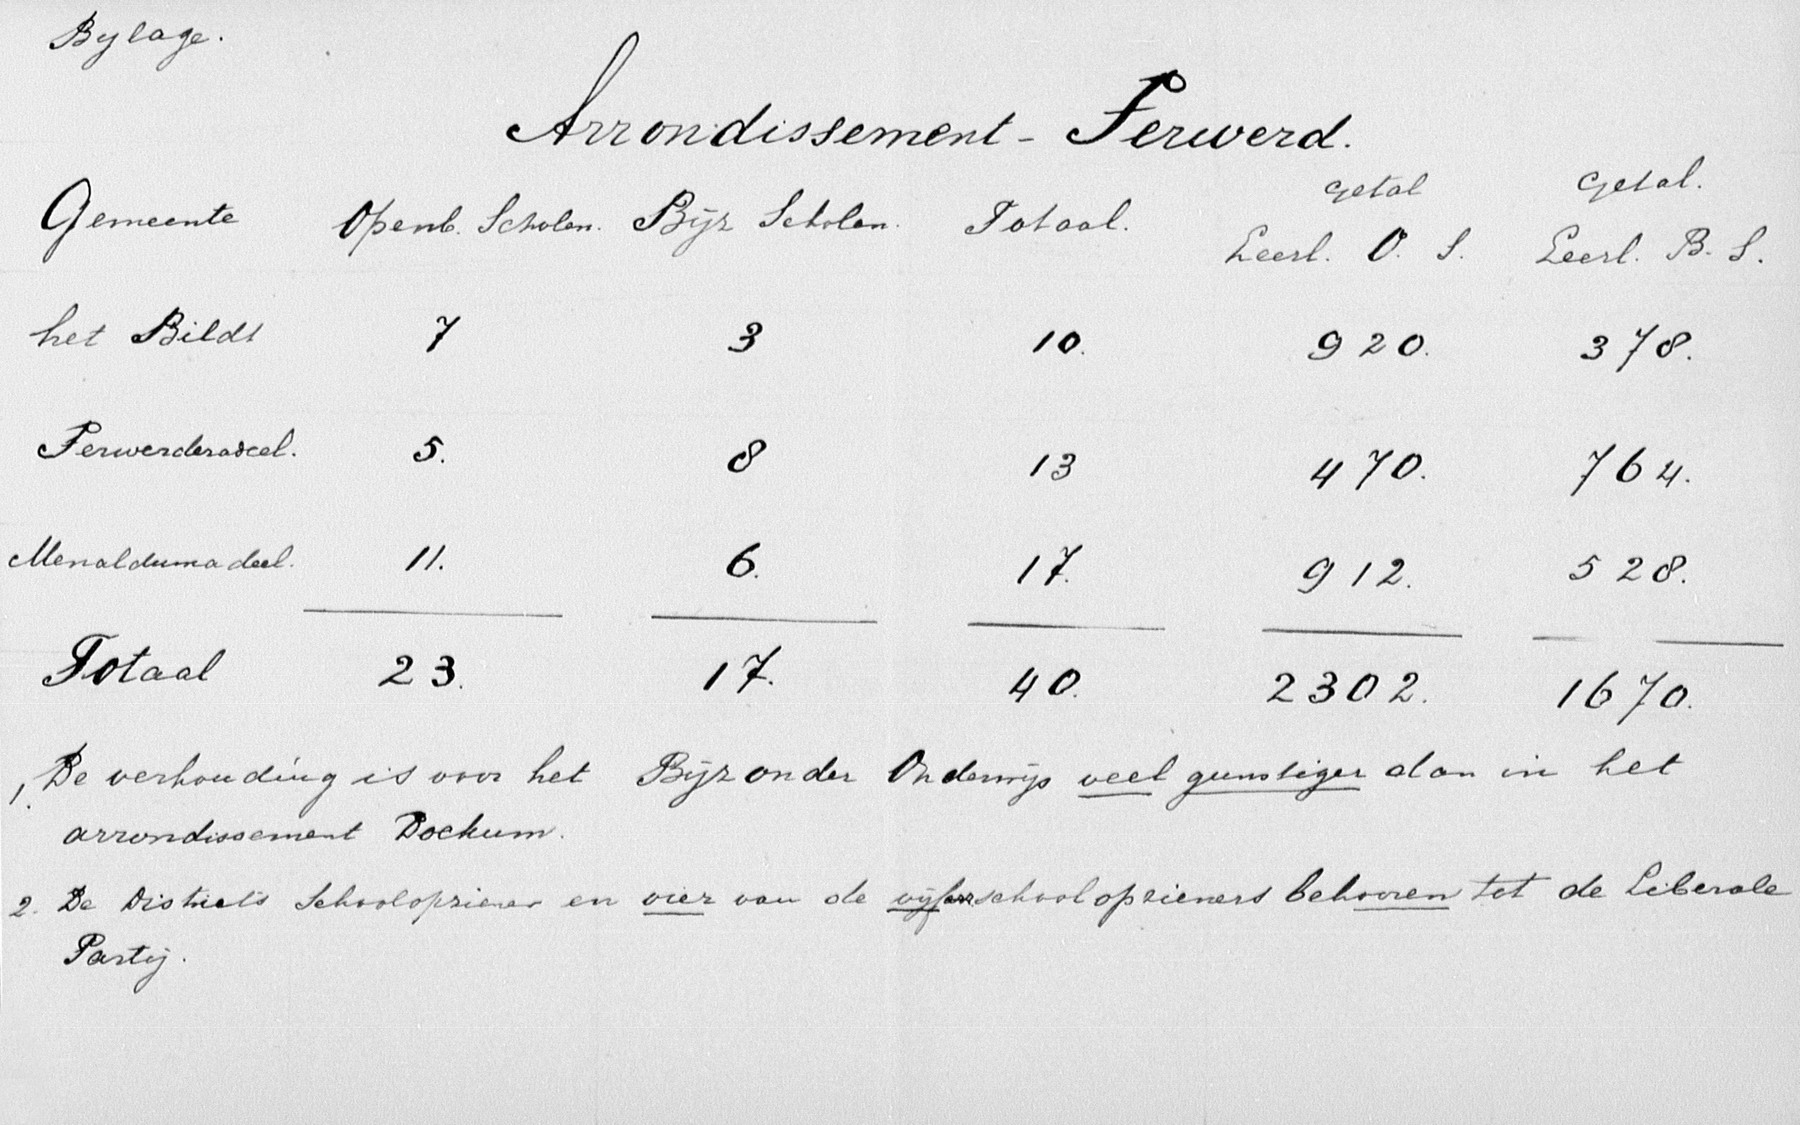 Bylage.
Arrondissement - Ferwerd.
Gemeente Openb. Scholen. Bijz Scholen. Totaal. getal Leerl. O. S. getal. Leerl. B. S.
het Bildt 7 3 10. 920. 378.
Ferwerderadeel. 5. 8 13 470. 764.
Menaldumadeel. 11. 6. 17. 912. 528.
Totaal 23. 17. 40. 2302. 1670.
1. De verhouding is voor het Bijzonder Onderwijs veel gunstiger dan in het
arrondissement Dockum.
2. De Districts Schoolopziener en vier van de schoolopzieners behooren tot de Liberale
Partij.